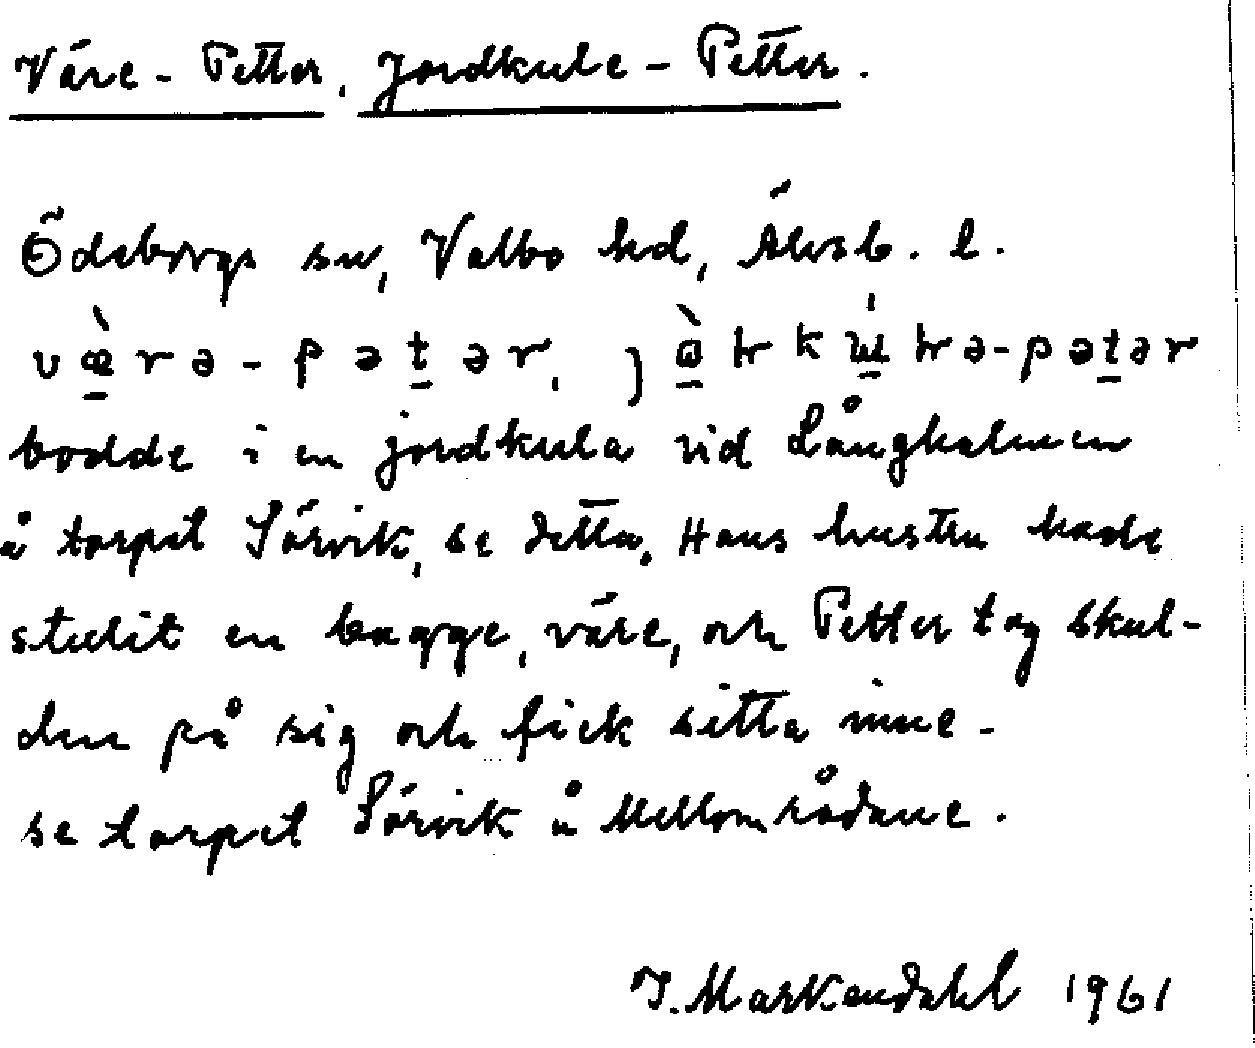 Väre-Petter, Jordkule-Petter.
Ödeborgs sn, Valbo hd, Älvsb. l.
bodde i en jordkula vid Långhalmen
å torpet Sörvik, se detta. Hans hustru hade
stulit en bagge, väre, och Petter tog skul-
den på sig och fick sitta inne.
se torpet Sörvik å Mellområdane.
I. Markendahl 1961